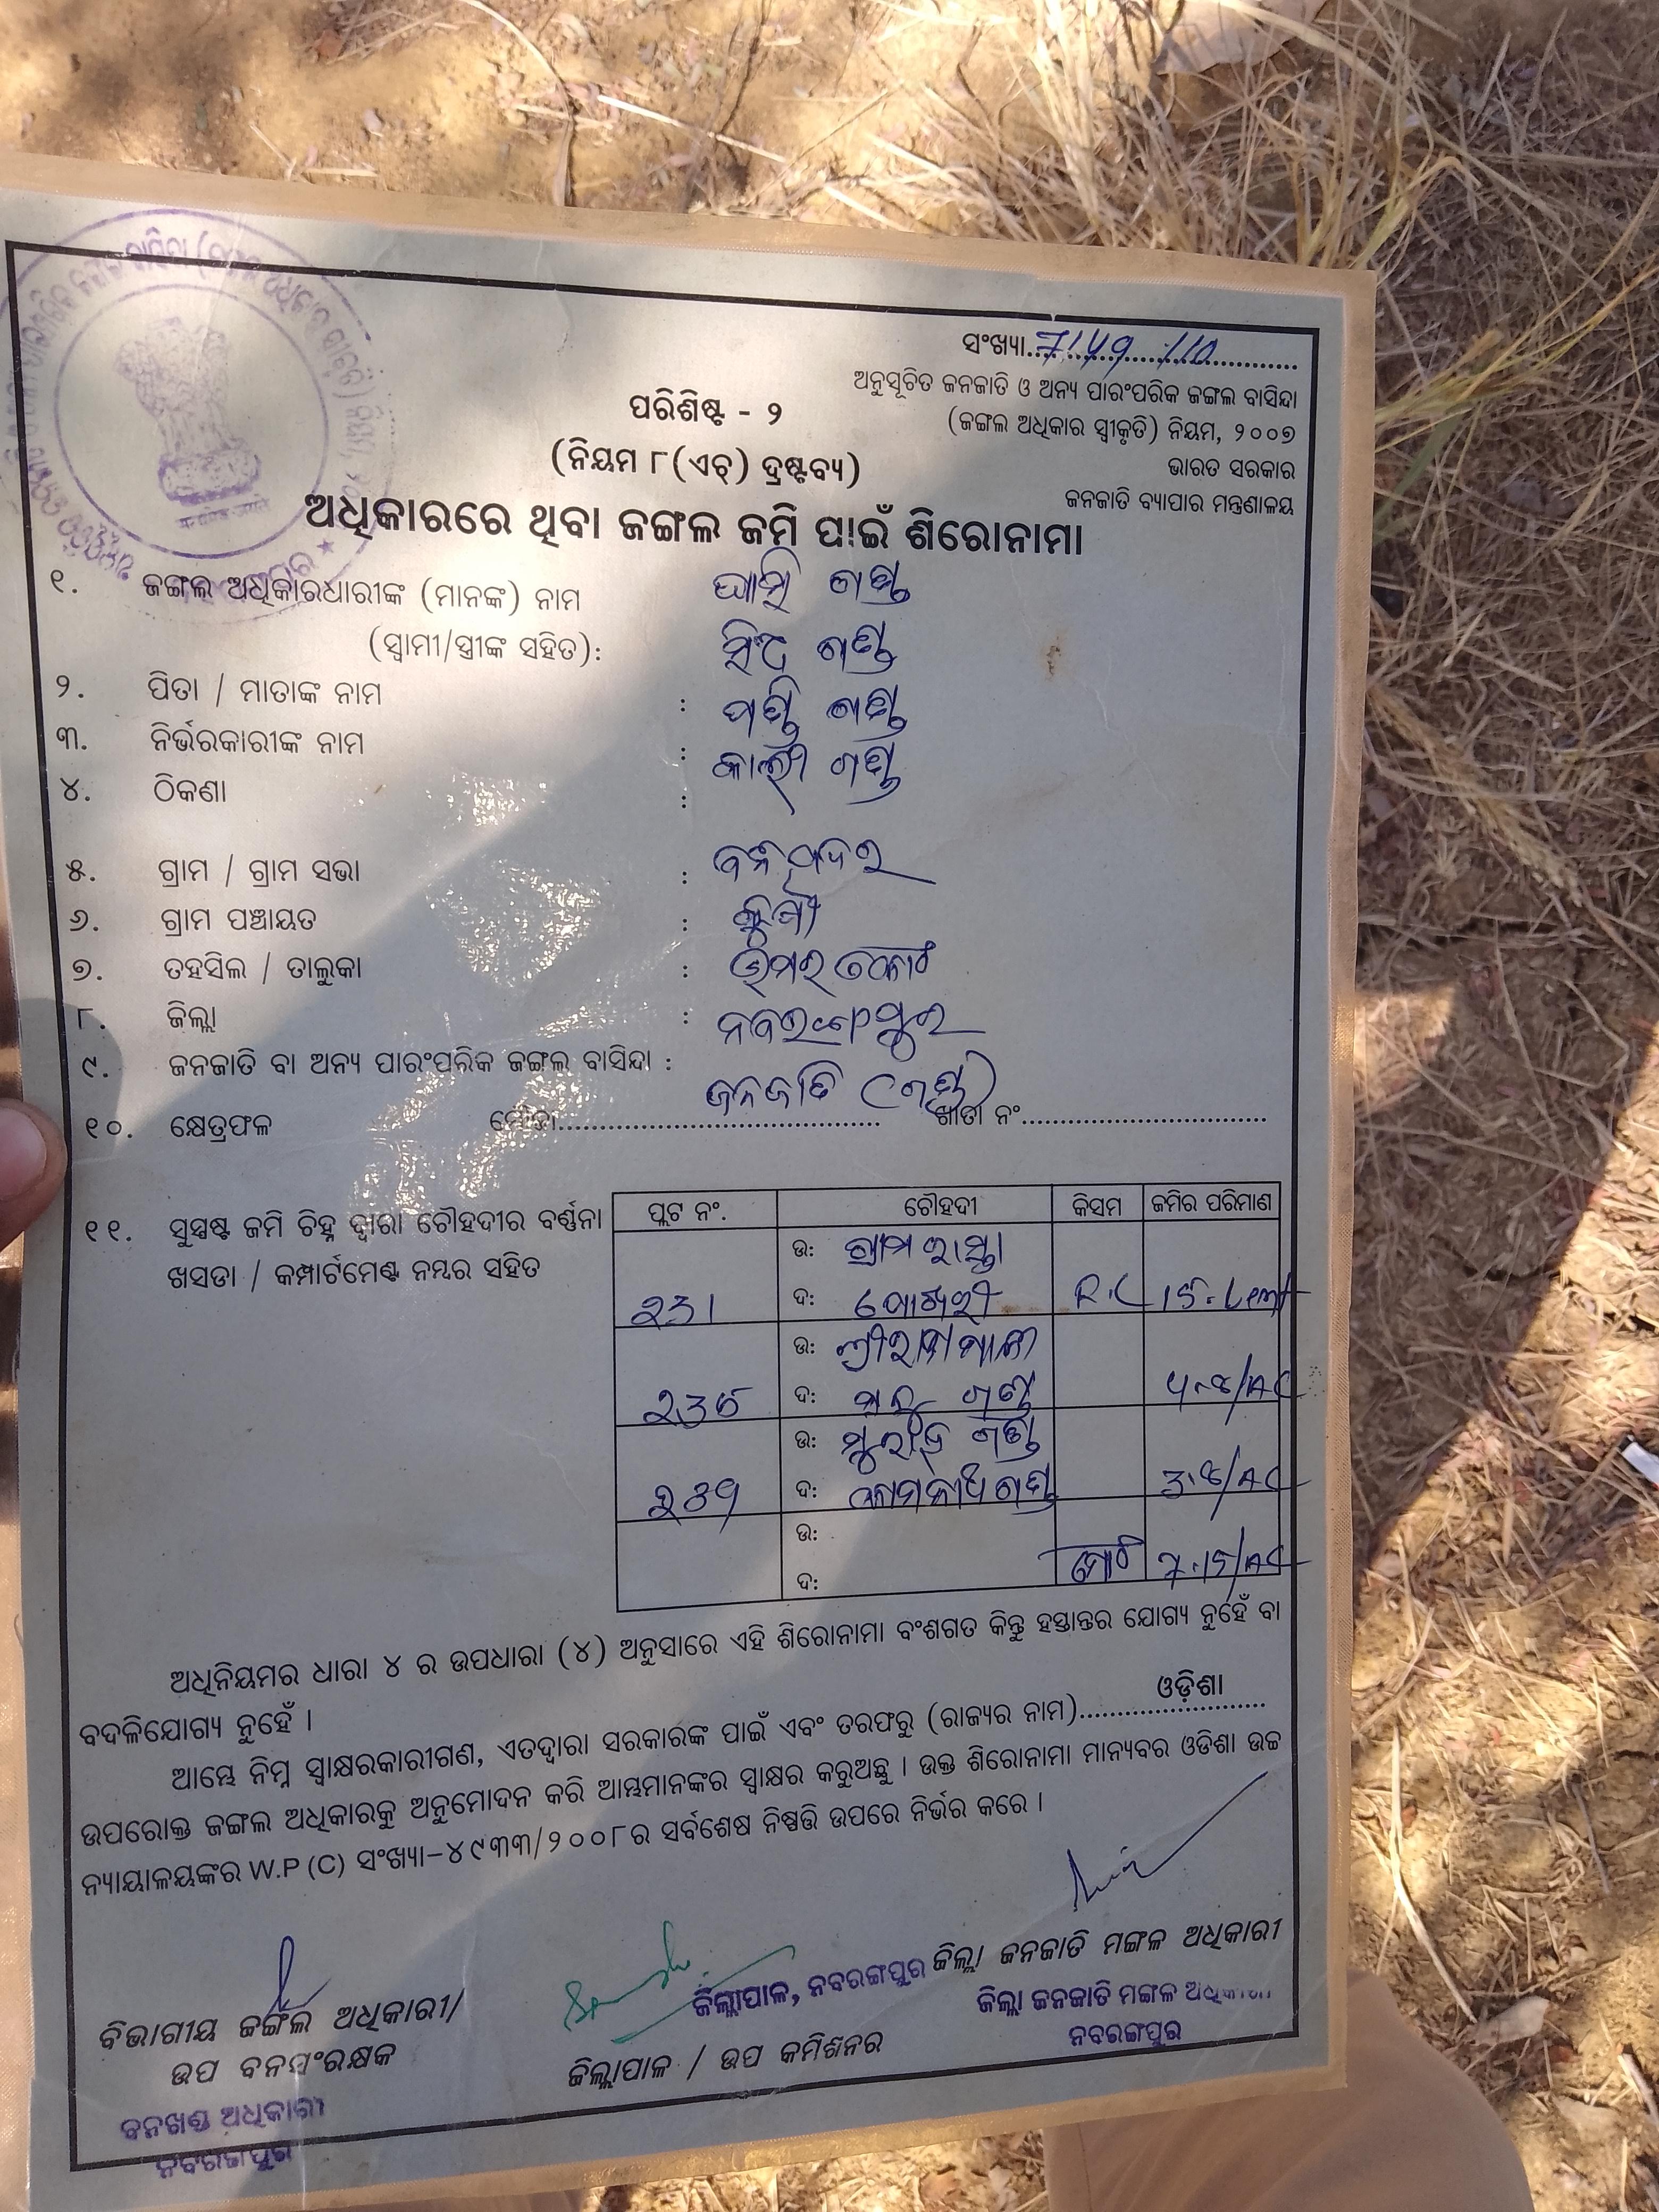 ସଂଖ୍ୟା..7149/10
ଅନୁସୂଚିତ ଜନଜାତି ଓ ଅନ୍ୟ ପାରଂପରିକ ଜଙ୍ଗଲ ବାସିନ୍ଦା
(ଜଙ୍ଗଲ ଅଧିକାର ସ୍ୱୀକୃତି) ନିୟମ, ୨୦୦୭
ଭାରତ ସରକାର
ଜନଜାତି ବ୍ୟାପାର ମନ୍ତ୍ରଣାଳୟ
ପରିଶିଷ୍ଟ - ୨
(ନିୟମ ୮(ଏଚ୍) ଦ୍ରଷ୍ଟବ୍ୟ)
ଅଧିକାରରେ ଥିବା ଜଙ୍ଗଲ ଜମି ପାଇଁ ଶିରୋନାମା
୧. ଜଙ୍ଗଲ ଅଧିକାରଧାରୀଙ୍କ (ମାନଙ୍କ) ନାମ ଘାସି ଗଣ୍ଡ
(ସ୍ୱାମୀ/ସ୍ତ୍ରୀଙ୍କ ସହିତ): ଗଣ୍ଡ
୨. ପିତା / ମାତାଙ୍କ ନାମ : ଗଣ୍ଡ
୩. ନିର୍ଭରକାରୀଙ୍କ ନାମ : ଗଣ୍ଡ
୪. ଠିକଣା :
୫. ଗ୍ରାମ / ଗ୍ରାମ ସଭା :
୬. ଗ୍ରାମ ପଞ୍ଚାୟତ :
୭. ତହସିଲ / ତାଲୁକା : ଉମରକୋଟ
୮. ଜିଲ୍ଲା : ନବରଙ୍ଗପୁର
୯. ଜନଜାତି ବା ଅନ୍ୟ ପାରଂପରିକ ଜଙ୍ଗଲ ବାସିନ୍ଦା : ଜନଜାତି (ଗଣ୍ଡ)
୧୦. କ୍ଷେତ୍ରଫଳ ମୌଜା.................... ଖାତା ନଂ....................
୧୧. ସୁସ୍ପଷ୍ଟ ଜମି ଚିହ୍ନ ଦ୍ୱାରା ଚୌହଦୀର ବର୍ଣ୍ଣନା
ଖସଡା / କମ୍ପାର୍ଟମେଣ୍ଟ ନମ୍ବର ସହିତ
ପ୍ଲଟ ନଂ. ଚୌହଦୀ କିସମ ଜମିର ପରିମାଣ
ଉ: ଗ୍ରାମ ରାସ୍ତା
୨୩୧ ଦ: ପୋଖରୀ
ଉ:
ଦ: ଗଣ୍ଡ
ଉ: ଗଣ୍ଡ
ଦ: ଗଣ୍ଡ
ଉ:
ଦ: ମୋଟ
ଅଧିନିୟମର ଧାରା ୪ ର ଉପଧାରା (୪) ଅନୁସାରେ ଏହି ଶିରୋନାମା ବଂଶଗତ କିନ୍ତୁ ହସ୍ତାନ୍ତର ଯୋଗ୍ୟ ନୁହେଁ ବା
ବଦଳିଯୋଗ୍ୟ ନୁହେଁ ।
ଆମ୍ଭେ ନିମ୍ନ ସ୍ୱାକ୍ଷରକାରୀଗଣ, ଏତଦ୍ୱାରା ସରକାରଙ୍କ ପାଇଁ ଏବଂ ତରଫରୁ (ରାଜ୍ୟର ନାମ)....ଓଡ଼ିଶା....
ଉପରୋକ୍ତ ଜଙ୍ଗଲ ଅଧିକାରକୁ ଅନୁମୋଦନ କରି ଆମ୍ଭମାନଙ୍କର ସ୍ୱାକ୍ଷର କରୁଅଛୁ । ଉକ୍ତ ଶିରୋନାମା ମାନ୍ୟବର ଓଡିଶା ଉଚ୍ଚ
ନ୍ୟାୟାଳୟଙ୍କର W.P (C) ସଂଖ୍ୟା–୪୯୩୩/୨୦୦୮ର ସର୍ବଶେଷ ନିଷ୍ପତ୍ତି ଉପରେ ନିର୍ଭର କରେ ।
ବିଭାଗୀୟ ଜଙ୍ଗଲ ଅଧିକାରୀ/
ଉପ ବନସଂରକ୍ଷକ
ବନଖଣ୍ଡ ଅଧିକାରୀ
ନବରଙ୍ଗପୁର
ଜିଲ୍ଲାପାଳ, ନବରଙ୍ଗପୁର
ଜିଲ୍ଲାପାଳ / ଉପ କମିଶନର
ଜିଲ୍ଲା ଜନଜାତି ମଙ୍ଗଳ ଅଧିକାରୀ
ଜିଲ୍ଲା ଜନଜାତି ମଙ୍ଗଳ ଅଧିକାରୀ
ନବରଙ୍ଗପୁର